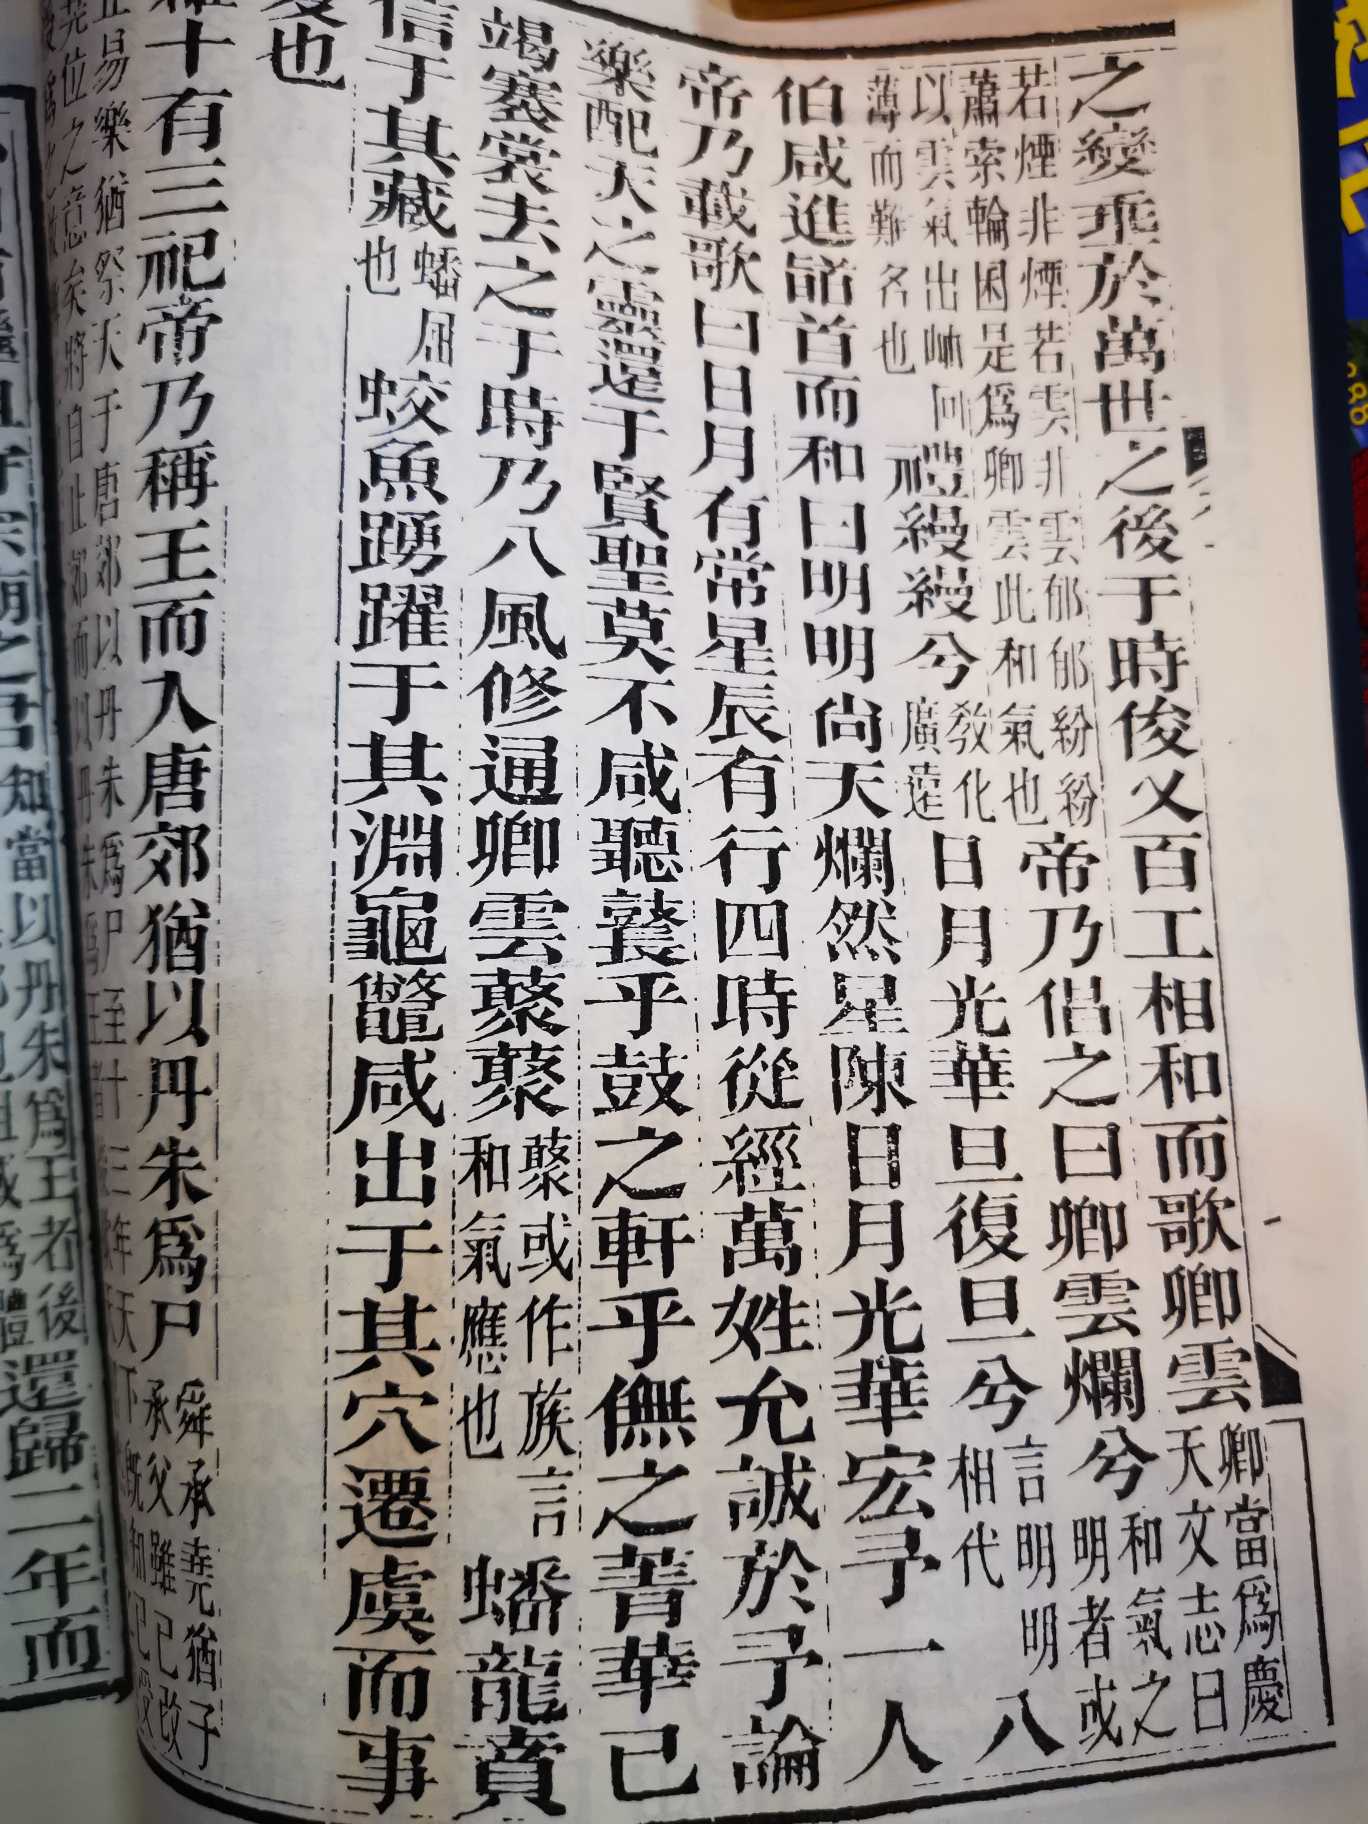 之變垂於萬世之後于時俊乂百工相和而歌卿雲卿當爲慶天文志曰
若煙非煙若雲非雲郁郁紛紛蕭索輪囷是爲卿雲此和氣也帝乃倡之曰卿雲爛兮和氣之明者或
以雲氣出岫回薄而難名也禮縵縵兮教化廣遠日月光華旦復旦兮言明明相代八
伯咸進䭫首而和曰明明尚天爛然星陳日月光華宏予一人
帝乃載歌曰日月有常星辰有行四時從經萬姓允誠於予論
樂配天之靈還于賢聖莫不咸聽鼚乎鼓之軒乎儛之菁華已
竭褰裳去之于時乃八風修通卿雲藂藂藂或作蔟言和氣應也蟠龍賁
信于其藏蟠屈也蛟魚踴躍于其淵龜鼈咸出于其穴遷虞而事
夏也
十有三祀帝乃稱王而入唐郊猶以丹朱爲尸舜承堯猶子承父雖已改
易樂猶祭天于唐郊以丹朱爲尸至十三年天下既知已受
堯位之意矣將自止郊而以丹朱爲王者後
知當以丹朱爲王者後
還歸二年而